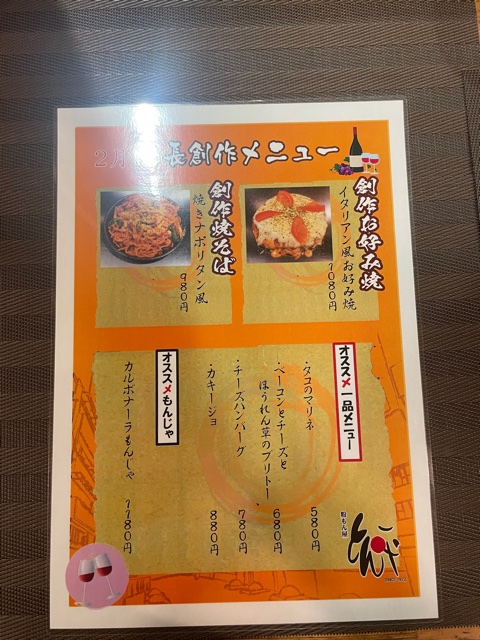 2月 長創作メニュー
創作お好み焼
イタリアン風お好み焼
1080円
創作焼そば
焼きナポリタン風
980円
オススメ一品メニュー
・タコのマリネ 580円
・ベーコンとチーズと
ほうれん草のブリトー 680円
・チーズハンバーグ 780円
・カキージョ 880円
オススメもんじゃ
カルボナーラもんじゃ 1180円
粉もん屋
とん